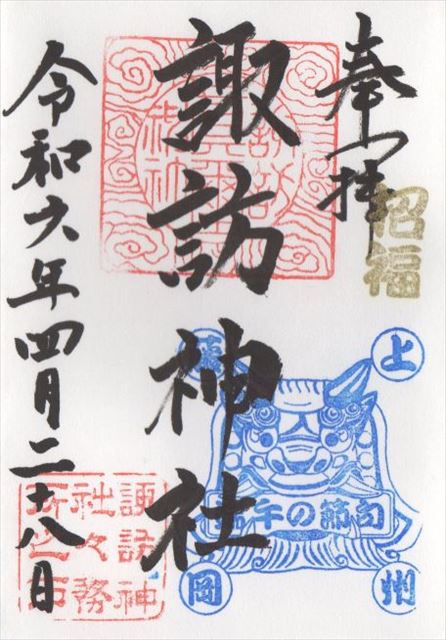 奉拝
招福
諏訪神社
令和六年四月二十八日
上
州
岡
端午の節句
諏訪神
社々務
所之印